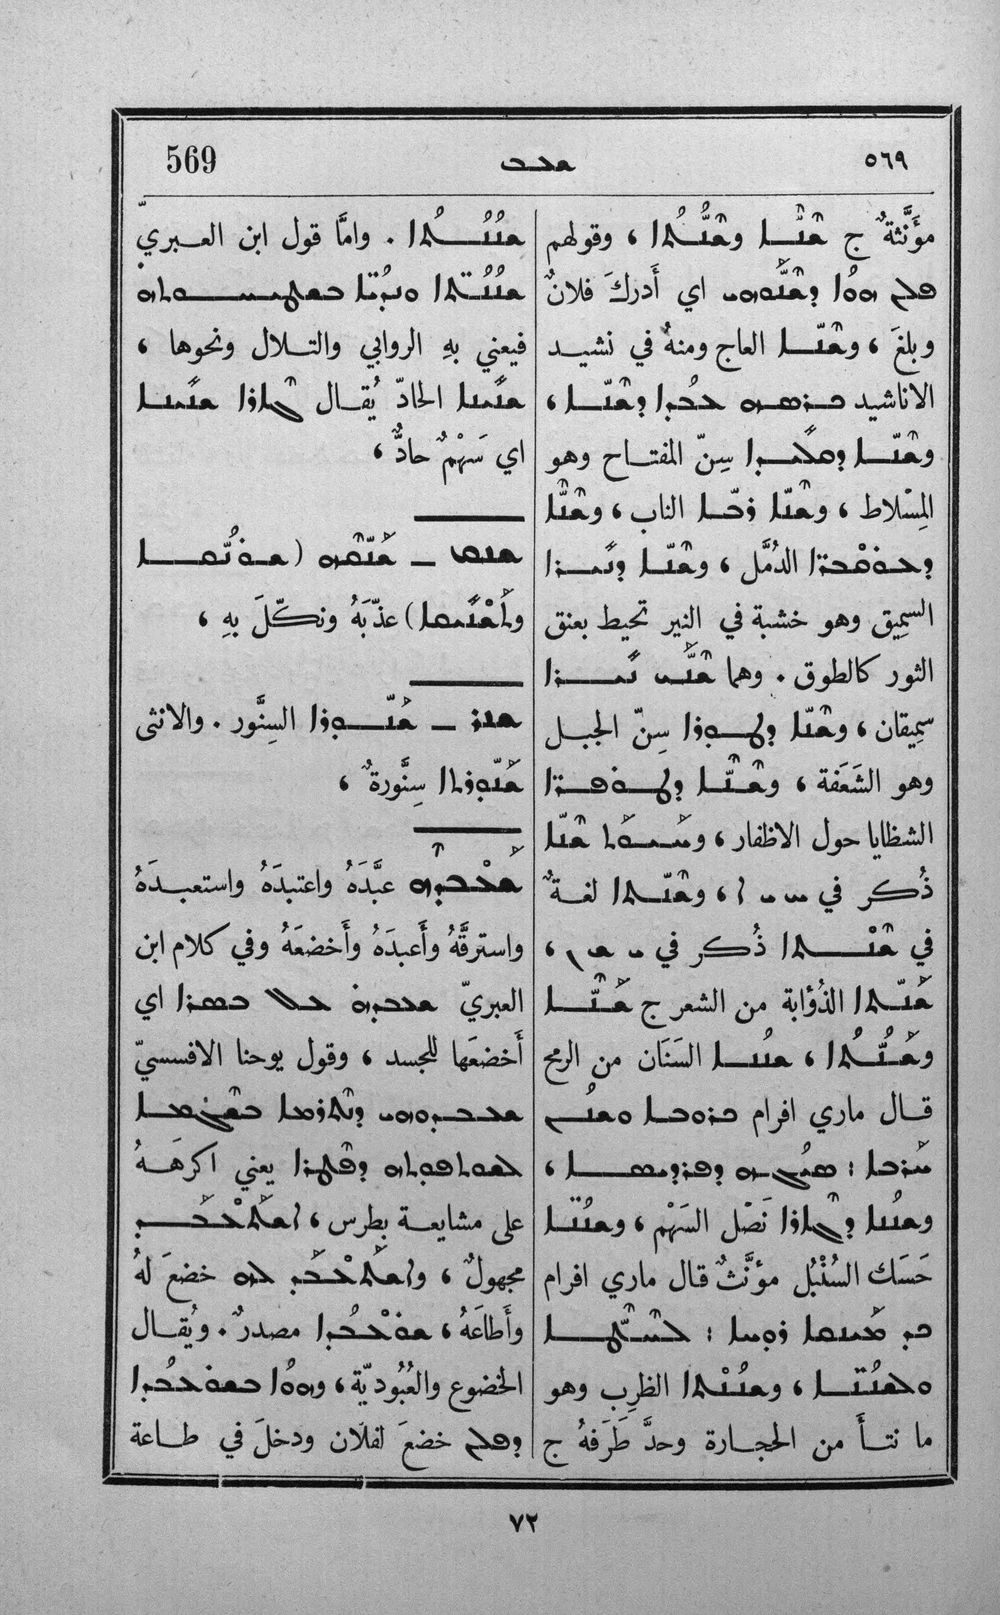 ٥٦٩ ܫܥܒ 569
مؤَنَّثةٌ ج ܫܢ̈ܐ ܘܫܢ̈ܬܐ ، وقولهم
ܗܘܐ ܕܫܢܘܗܝ اي أَدركَ فلانٌ
وبلغَ ، ܘܫܢܐ العاج ومنهُ في نشيد
الاناشيد ܟܪܣܗ ܥܒܕܐ ܕܫܢܐ ،
ܘܫܢܐ ܕܩܠܝܕܐ سِنّ المفتاح وهو
المِسْلاط ، ܘܫܢܐ ܪܒܐ الناب ، ܘܫܢ̈ܐ
ܕܥܘܩܒܪ̈ܐ الدُمَّل ، ܘܫܢܐ ܕܢܝܪܐ
السمِيق وهو خشبة في النير تحيط بعنق
الثور كالطوق . وهما ܫܢܝ ܢܝܪܐ
سمِيقان ، ܘܫܢܐ ܕܛܘܪܐ سِنّ الجبل
وهو الشَعَفَة ، ܘܫܢ̈ܐ ܕܛܘܦܪ̈ܐ
الشظايا حول الاظفار ، ܘܚܝܘܬ ܫܢܐ
ذُكر في ܚ ܝ ܐ ، ܘܫܢܬܐ لغةٌ
في ܫܢܬܐ ذُكر في ܝ ܫ ܢ ،
ܫܢܬܐ الذُؤابة من الشعر ج ܫܢ̈ܐ
ܘܫܢ̈ܬܐ ، ܫܢܢܐ السَنَان من الرمح
قال ماري افرام ܘܫܢܢ
ܚܪܒܐ : ܕܦܪܕܝܣܐ ،
ܘܫܢܢܐ ܕܓܐܪܐ نَصْل السَهْم ، ܘܫܢܢ̈ܐ
حَسَك السُنْبُل مؤنَّثٌ قال ماري افرام
ܟܕ
ܘܠܫܢܢ̈ܐ ، ܘܫܢܢܬܐ الظرِب وهو
ما نتأَ من الحجارة وحدَّ طَرَفهُ ج
ܫܢܢ̈ܬܐ . وامَّا قول ابن العبريّ
ܫܢܢ̈ܬܐ
فيعني بهِ الروابي والتلال ونحوها ،
ܫܢܝܢܐ الحادّ يُقال ܓܐܪܐ ܫܢܝܢܐ
اي سَهْمٌ حادٌّ ،
ܫܢܩ ـ ܫܢܩܗ (ܫܘܢܩܐ
ܘܐܫܢܝܩܐ) عذَّبَهُ ونكَّلَ بهِ ،
ܫܢܪ ـ ܫܢܘܪܐ السِنَّور . والانثى
ܫܢܘܪܬܐ سِنَّورةٌ ،
ܫܥܒܕܗ عبَّدَهُ واعتبدَهُ واستعبدَهُ
واسترقَّهُ وأَعبدَهُ وأَخضعَهُ وفي كلام ابن
العبريّ ܫܥܒܕܗ ܥܠ ܒܣܪܐ اي
أَخضعَها للجسد ، وقول يوحنا الافسسيّ
ܫܥܒܕܘܗܝ
ܠܫܘܬܦܘܬܗ ܕܦܛܪܐ يعني اكرهَهُ
على مشايعة بطرس ، ܐܫܬܥܒܕ
مجهولٌ ، ܘܐܫܬܥܒܕ ܠܗ خضعَ لهُ
وأَطاعَهُ ، ܫܘܥܒܕܐ مصدرٌ . ويُقال
الخضوع والعُبُوديّة ، ܘܗܘܐ ܒܫܘܥܒܕܐ
ܕܦܠܢ خضعَ لفلان ودخلَ في طاعة
٧٢